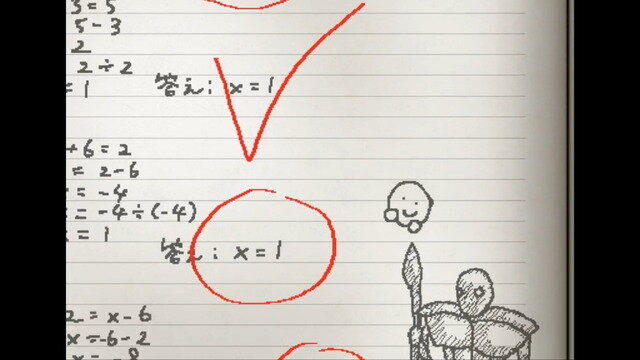 3 = 5
5 - 3
2
2 ÷ 2
= 1 答え: x = 1
+ 6 = 2
= 2 - 6
= -4
= -4 ÷ (-4)
= 1
答え: x = 1
2 = x - 6
x = -6 - 2
x = -8